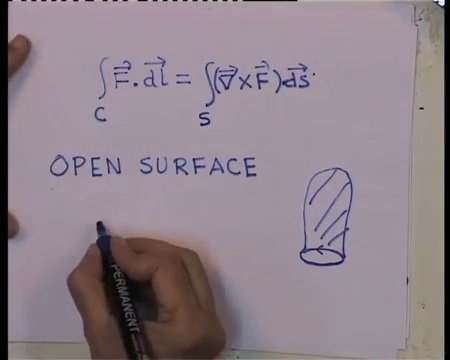 ∫ F⃗ · dl⃗ = ∫ (∇⃗ × F⃗) · ds⃗
C S
OPEN SURFACE
PERMANENT